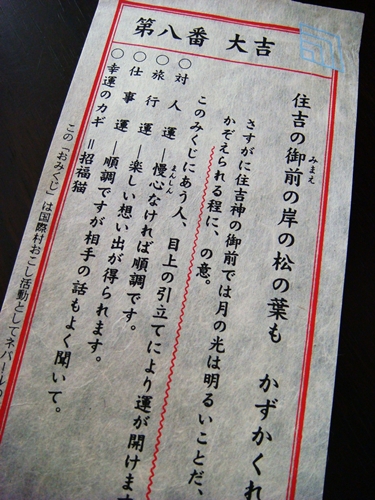 第八番 大吉
住吉の御前の岸の松の葉も かずかくれ
みまえ
さすがに住吉神の御前では月の光は明るいことだ、
かぞえられる程に、の意。
このみくじにあう人、目上の引立てにより運が開けます
○対人運―慢心なければ順調です。
まんしん
○旅行運―楽しい想い出が得られます。
○仕事運―順調ですが相手の話もよく聞いて。
○幸運のカギ=招福猫
この「おみくじ」は国際村おこし活動としてネパールの